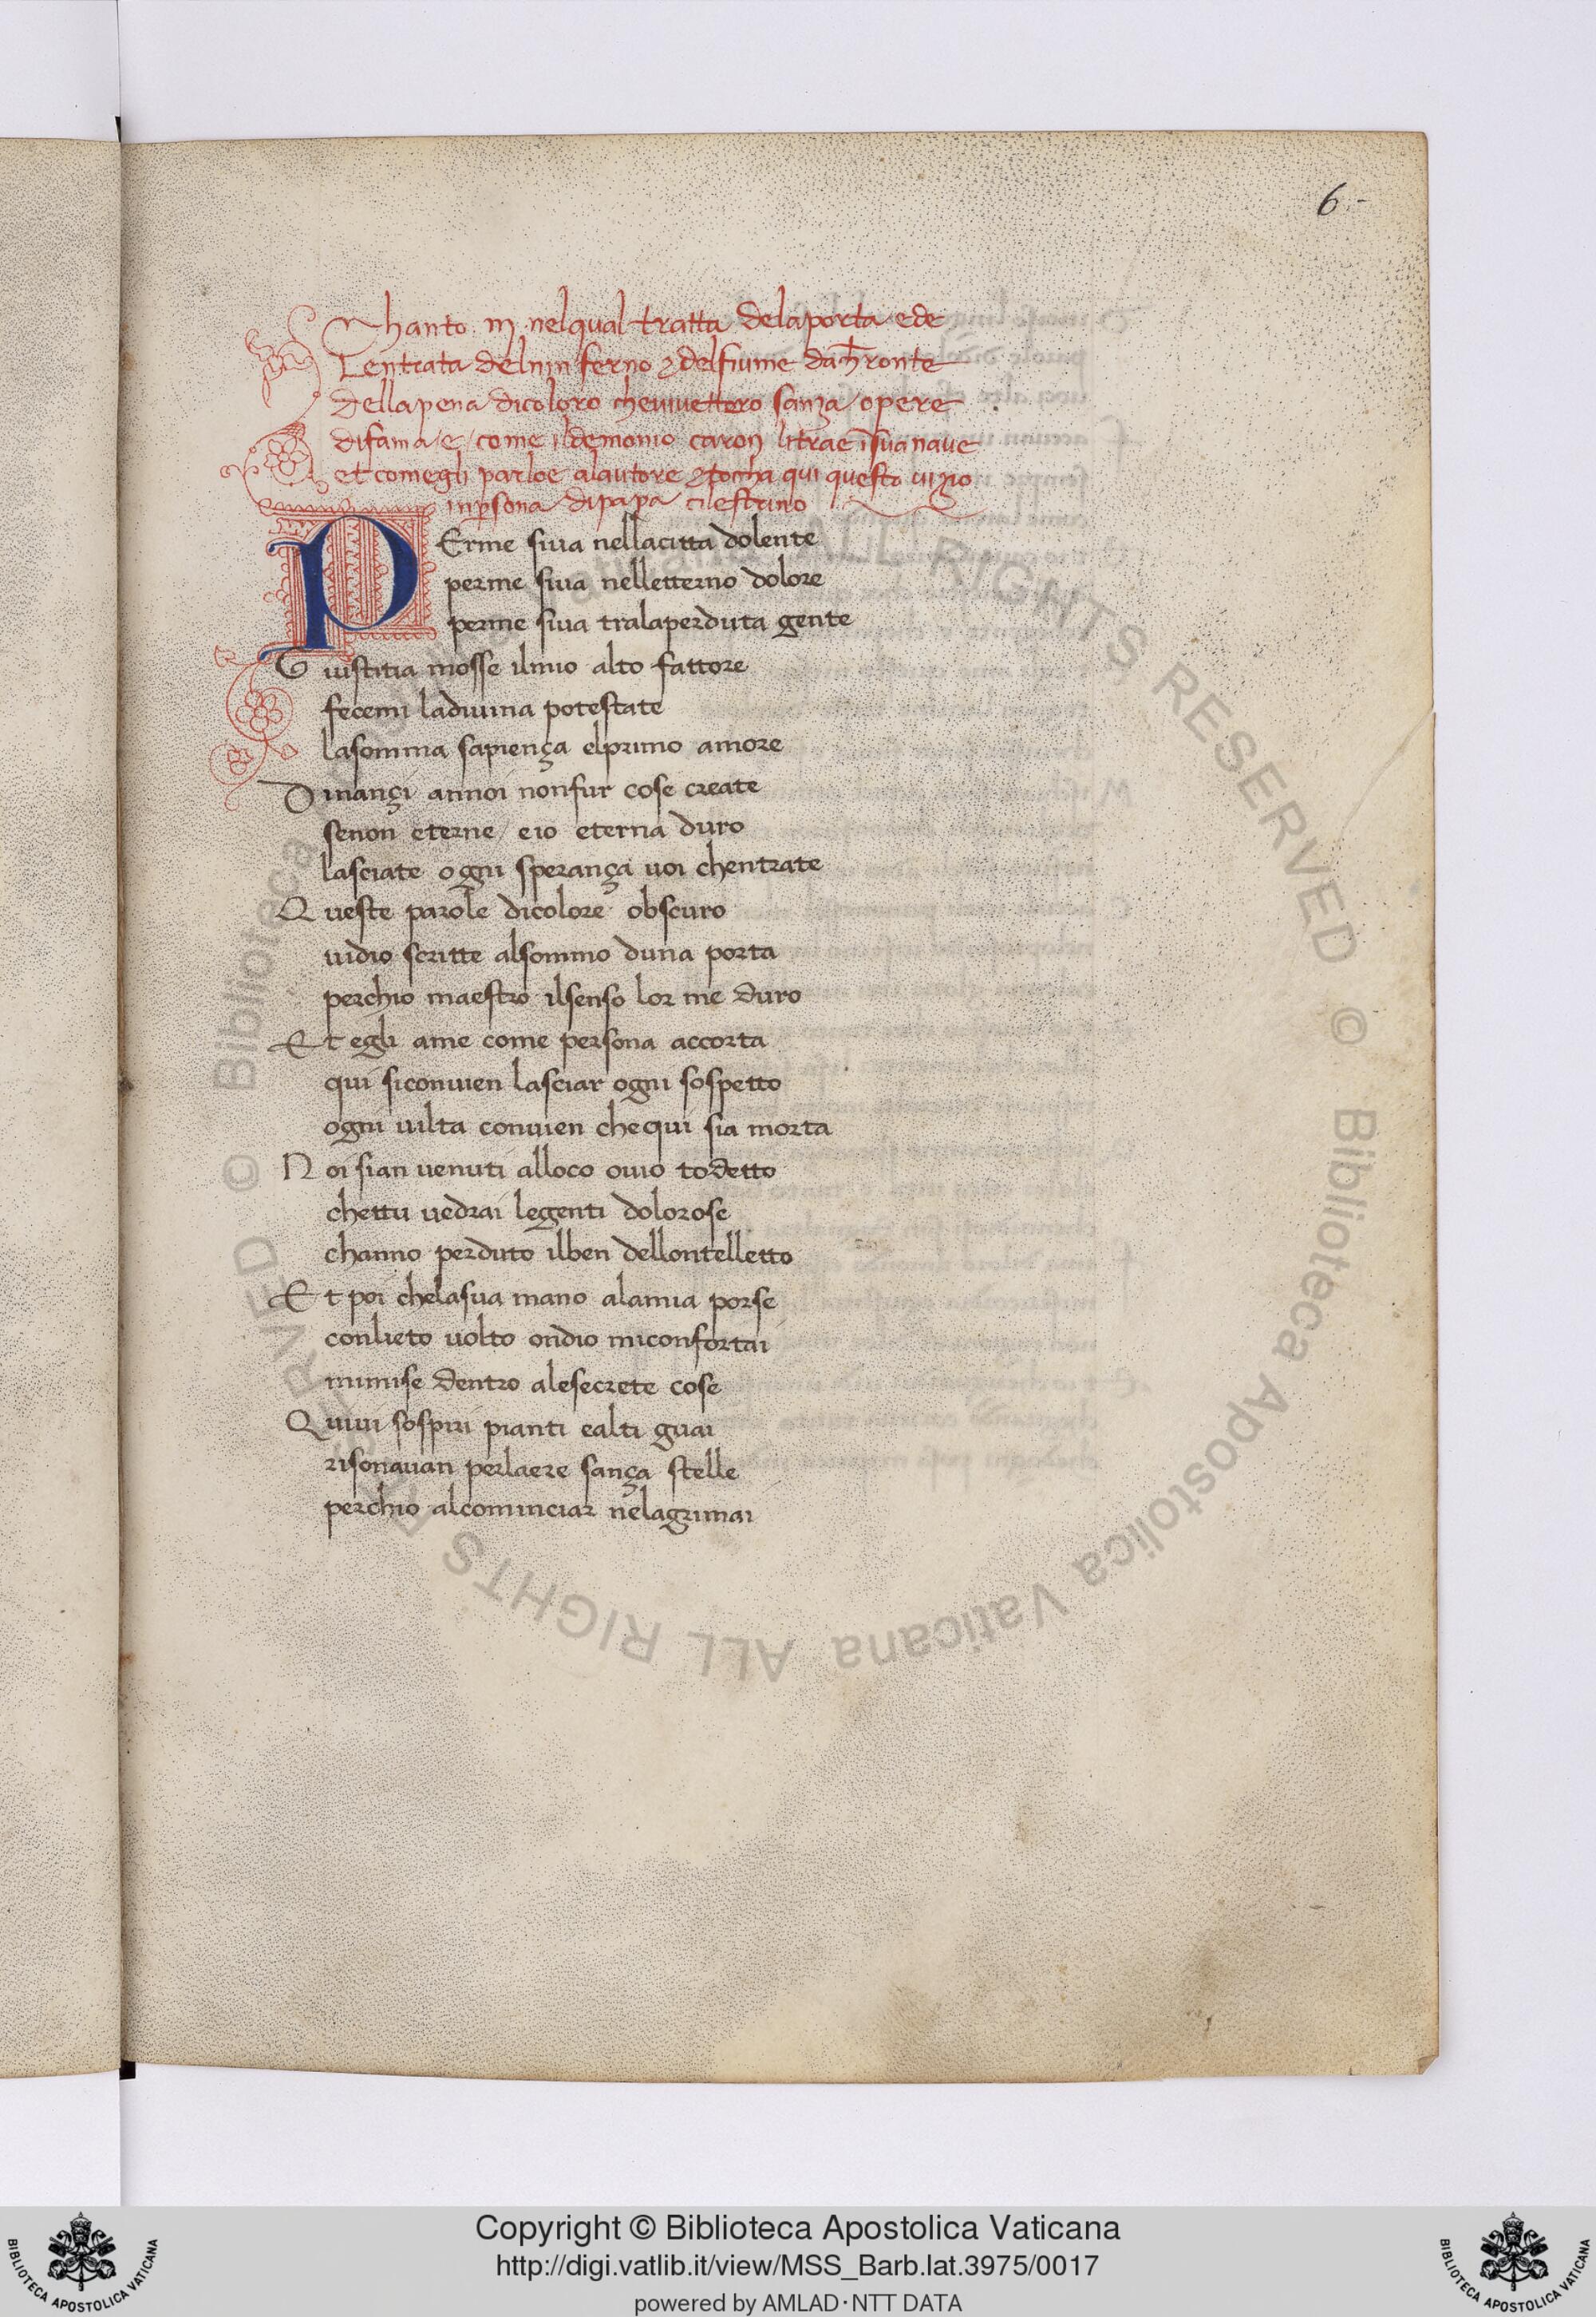 6
Chanto .iij. nelqual tratta delaporta ede
Lentrata delninferno & delfiume dach̄ronte
dellapena dicoloro chevivettero sanza opere
difama / e / come ildemonio caron litrae ī sua nave
et comegli parloe alautore & toccha qui questo vizio
in ꝑsona dipapa cilestrino
PErme siva nellacitta dolente
perme siva nelletterno dolore
perme siva tralaperduta gente
Giustitia mosse ilmio alto fattore
fecemi ladivina potestate
lasomma sapiença elprimo amore
Dinançi annoi nonfur cose create
senon eterne / eio eterna duro
lasciate ogni sperança voi chentrate
Queste parole dicolore obscuro
vidio scritte alsommo duna porta
perchio maestro ilsenso lor me duro
Et egli ame come persona accorta
qui siconvien lasciar ogni sospetto
ogni vilta convien chequi sia morta
Noi sian venuti alloco ovio todetto
chettu vedrai legenti dolorose
channo perduto ilben dellontelletto
Et poi chelasua mano alamia porse
conlieto volto ondio miconfortai
mimise dentro alesecrete cose
Quivi sospiri pianti ealti guai
risonavan perlaere sança stelle
perchio alcominciar nelagrimai
© Biblioteca Apostolica Vaticana ALL RIGHTS RESERVED © Biblioteca Apostolica Vaticana ALL RIGHTS RESERVED
Copyright © Biblioteca Apostolica Vaticana
http://digi.vatlib.it/view/MSS_Barb.lat.3975/0017
powered by AMLAD·NTT DATA
BIBLIOTECA APOSTOLICA VATICANA
BIBLIOTECA APOSTOLICA VATICANA